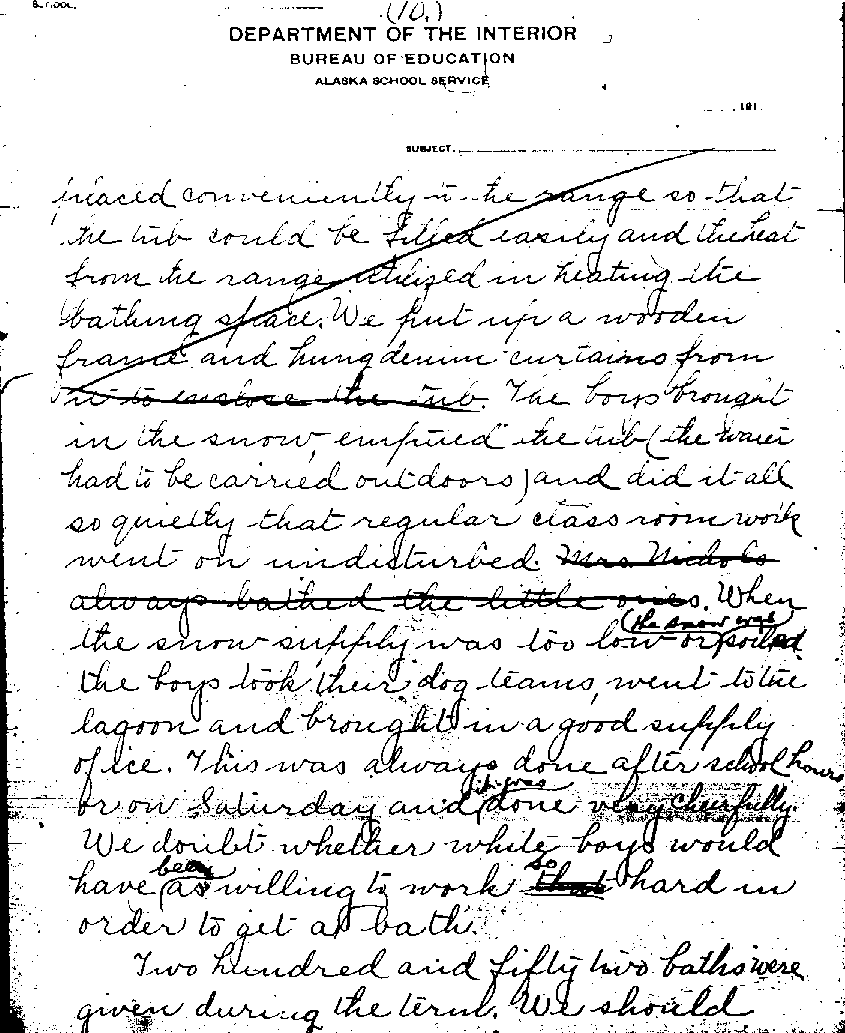 (10.)
DEPARTMENT OF THE INTERIOR
BUREAU OF EDUCATION
ALASKA SCHOOL SERVICE
191
SUBJECT.
placed conveniently to the range so that
the tub could be filled easily and the heat
from the range utilized in heating the
bathing space. We put up a wooden
frame and hung denim curtains from
it to enclose the tub. The boys brought
in the snow, emptied the tub (the water
had to be carried outdoors) and did it all
so quietly that regular class room work
went on undisturbed. Mrs Nichols
always bathed the little ones. When
(the snow was
the snow supply was too low or soiled
the boys took their dog teams, went to the
lagoon and brought in a good supply
of ice. This was always done after school hours
it was
or on Saturday and done very cheerfully.
We doubt whether white boys would
been so
have as willing to work that hard in
order to get a bath.
Two hundred and fifty two baths were
given during the term. We should